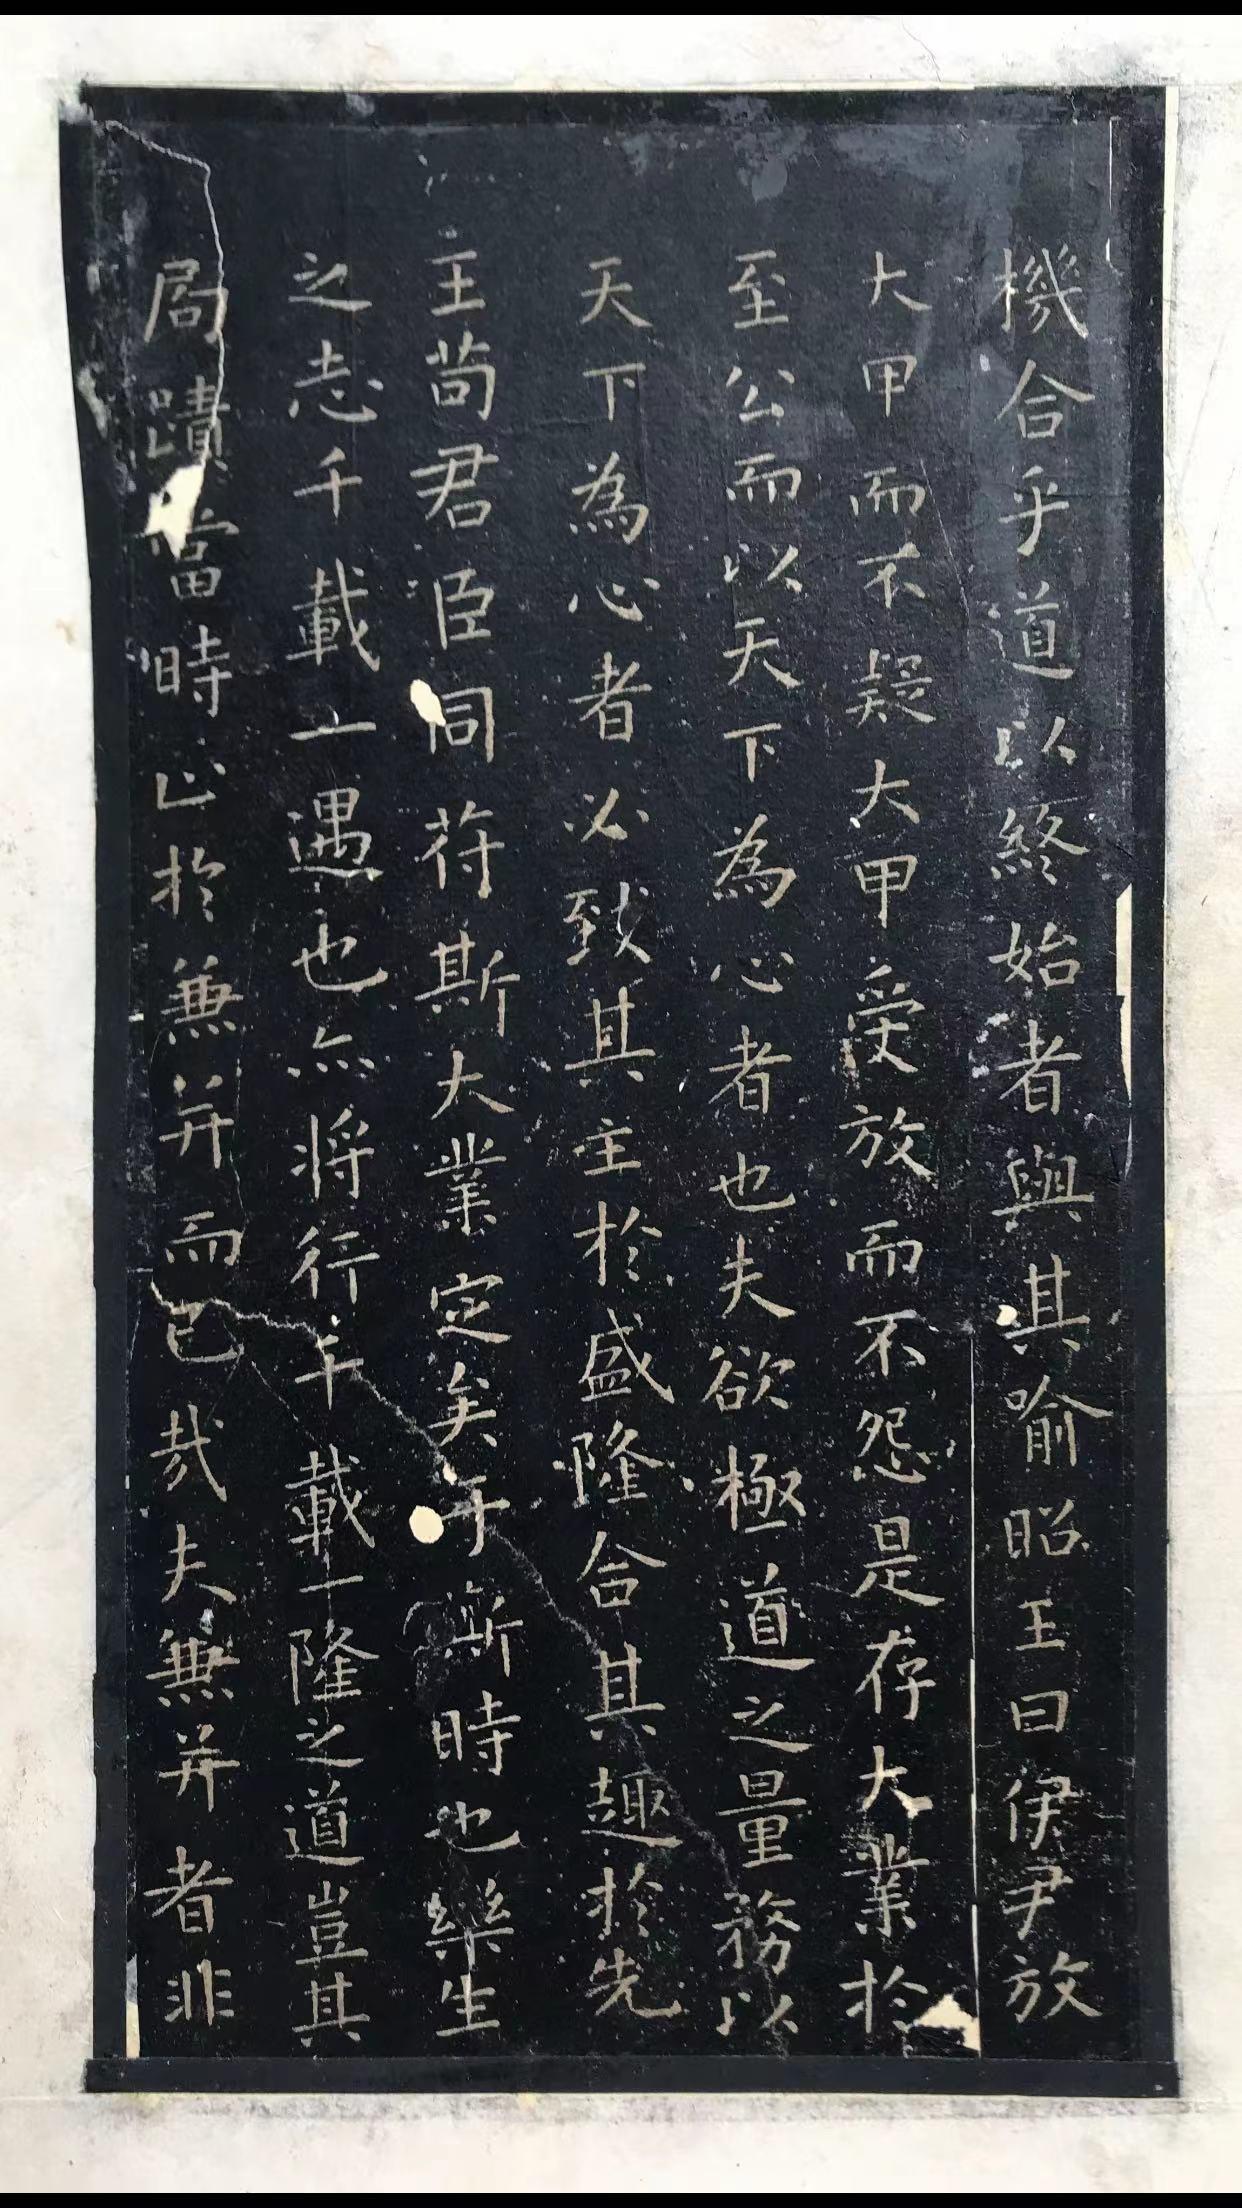 機合乎道以終始者與其喻昭王曰伊尹放
大甲而不疑大甲受放而不怨是存大業於
至公而以天下為心者也夫欲極道之量務以
天下為心者必致其主於盛隆合其趣於先
王苟君臣同符斯大業定矣于斯時也樂生
之志千載一遇也亦將行千載一隆之道豈其
局蹟當時止於兼并而已哉夫兼并者非